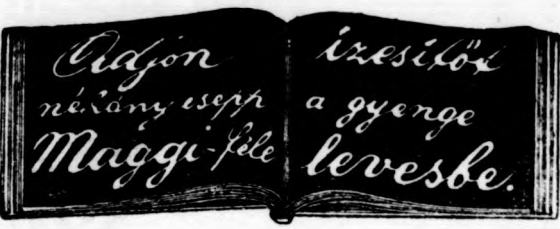 Adjon
néhány csepp
Maggi-féle
izesitőt
a gyenge
levesbe.